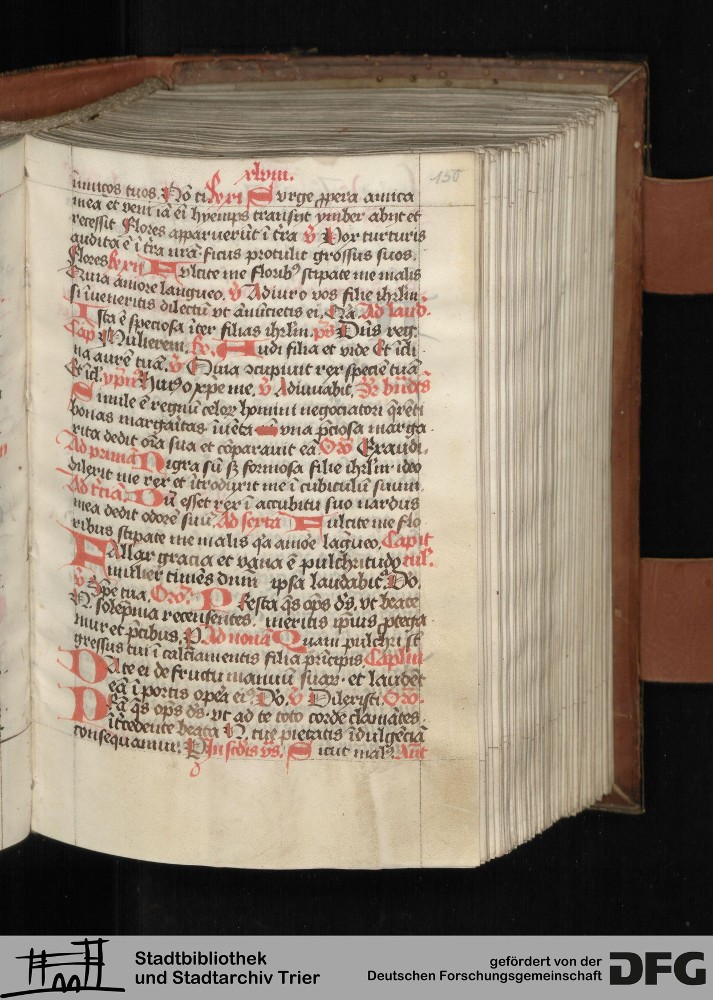 xlviii.
150
inimicos tuos. Surge ꝓpera amica
mea et veni iā ei hyemps transiit ymber abijt et
recessit Flores apparuerūt ī tr̄a v̄ Vox turturis
audita ē ī tr̄a nr̄a. ficus protulit grossus suos.
Flores Fulcite me floribꝰ stipate me malis
Quia amore langueo. v̄ Adiuro vos filie ihrl̄m
si īueneritis dilectū vt ānūcietis ei. Ad laud̄.
Ista ē speciosa īter filias ihrl̄m. ps Dūs reg.
Cap̄ Mulierem. Audi filia et vide Et īcli
na aurē tuā. v̄ Quia ↄcupiuit rex speciē tuā
Et īcl. ympn̄ v̄ Adiuuabit.
Simile ē regnū celoꝝ homini negociatori q̄rēti
bonas margaritas īuēta una p̄ciosa marga
rita dedit oīa sua et cōparauit eā Or̄o Exaudi.
Ad primā Nigra sū sꝫ formosa filie ihrl̄m ideo
dilexit me rex et ītroduxit me ī cubiculū suum.
Ad t̄ciā. Dū esset rex ī accubitu suo nardus
mea dedit odorē suū. Ad sextā Fulcite me flo
ribus stipate me malis q̄a amoē lāgueo. Capit
Fallax gracia et vana ē pulchritudo tul̄.
mulier timēs dnm̄ ipsa laudabit̄. Do.
v̄ Spē tua. Or̄o. Presta q̄s op̄s d̄s. vt beate
N. solēpnia recensentes. meritis ip̄ius ꝓtega
mur et p̄cibus. P. Ad nonā Quam pulchri st̄
gressus tui ī calciamentis filia prīcipis Caplm̄
Date ei de fructu manuū suaꝝ. et laudēt
eā ī portis opera eiꝰ. Do. v̄ Dilexisti. Or̄o.
Da q̄s op̄s d̄s. vt ad te toto corde clamātes.
ītercedente beata N. tue pietatis īdulgēciā
consequamur. P In sc̄dis vs̄. Sicut mal. Ant̄
Stadtbibliothek
und Stadtarchiv Trier
gefördert von der
Deutschen Forschungsgemeinschaft
DFG